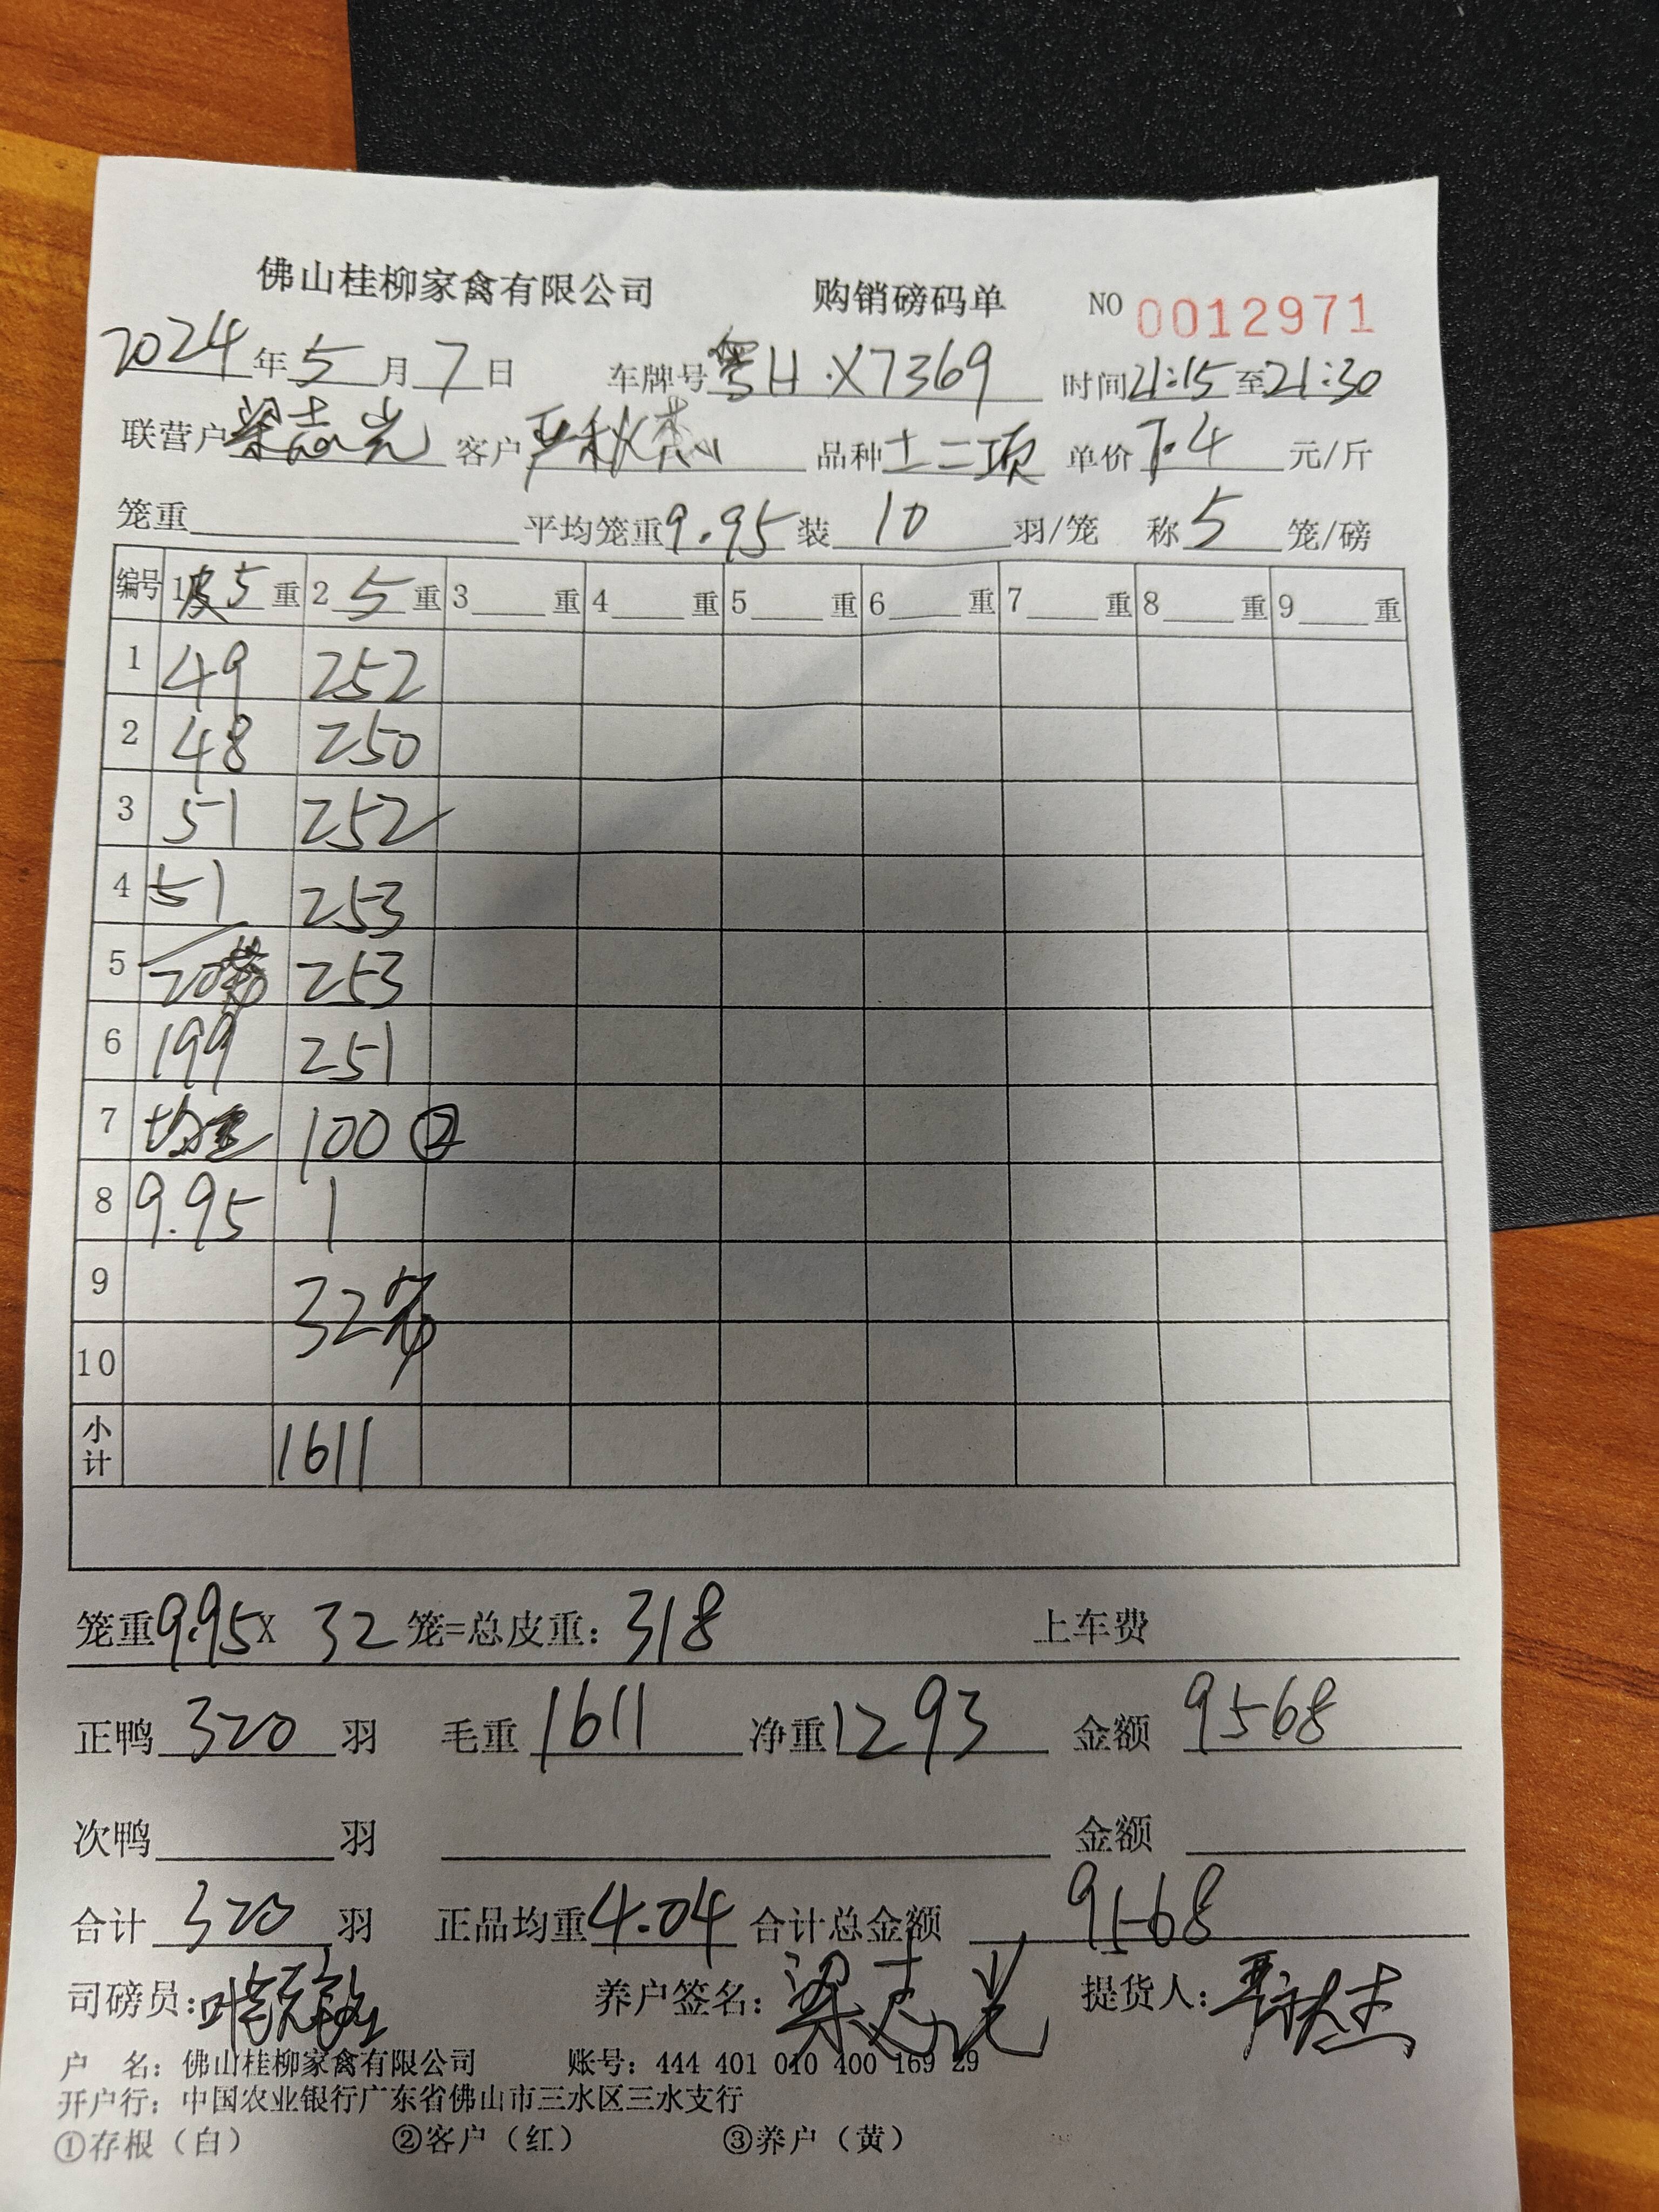 佛山桂柳家禽有限公司 购销磅码单 NO 0012971
2024年5月7日 车牌号粤H·X7369 时间21:15至21:30
联营户梁志光 客户严秋杰 品种土二项 单价7.4元/斤
笼重 平均笼重9.95装10羽/笼 称5笼/磅
编号 1皮5重 2 5重 3 重 4 重 5 重 6 重 7 重 8 重 9 重
1 49 252
2 48 250
3 51 252
4 51 253
5 20笼 253
6 199 251
7 均重 100②
8 9.95 1
9 32笼
10
小计 1611
笼重9.95X 32笼=总皮重:318 上车费
正鸭320羽 毛重1611 净重1293 金额9568
次鸭 羽 金额
合计320羽 正品均重4.04 合计总金额9568
司磅员: 养户签名:梁志光 提货人:
户 名:佛山桂柳家禽有限公司 账号:444 401 010 400 169 29
开户行:中国农业银行广东省佛山市三水区三水支行
①存根(白) ②客户(红) ③养户(黄)